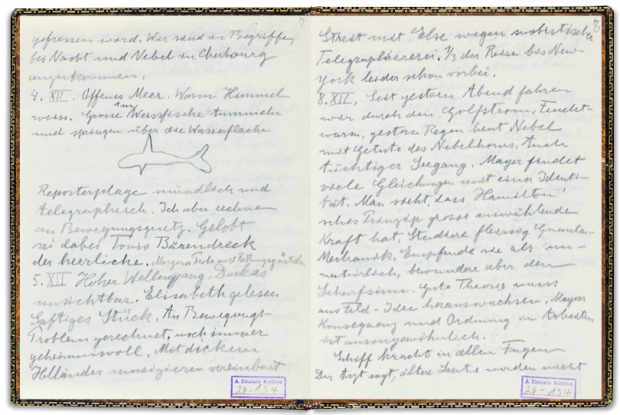 7
gefressen ward. Wir sind im Begriffe,
bei Nacht und Nebel in Cherbourg
anzukommen.
4. XII. Offenes Meer. Warm Himmel
weiss. Grosse Weissfische tummeln
und springen über die Wasserfläche
Reporterplage mündlich und
telegraphisch. Ich aber rechne
an Bewegungsgesetz. Gelobt
sei dabei Louis Bärendreck
der herrliche.
5. XII Hoher Wellengang. Dorkas
unsichtbar. Elisabeth gelesen
Saftiges Stück. An Bewegungs-
Problem gerechnet, noch immer
geheimnisvoll. Mit dickem
Holländer musizieren vereinbart
A. Einstein Archive
29-134
8
Streit mit Else wegen
Telegraphiererei. 1/3 der Reise bis New-
York leider schon vorbei.
8. XII. Seit gestern Abend fahren
wir durch den Golfstrom, Feucht-
warm, gestern Regen heut Nebel
mit Getute des Nebelhorns. Auch
tüchtiger Seegang. Mayer findet
viele Gleichungen mit einer Identi-
tät. Man sieht, dass Hamilton'
sches Prinzip grosse auswählende
Kraft hat. Studiere fleissig Quanten-
Mechanik. Empfinde sie als un-
natürlich, bewundere aber den
Scharfsinn. Gute Theorie muss
aus Feld-Idee herauswachsen. Mayers
Konsequenz und Ordnung im Arbeiten
ist aussergewöhnlich.
Schiff kracht in allen Fugen
Der Arzt sagt, ältere Leute werden nicht
A. Einstein Archive
29-134